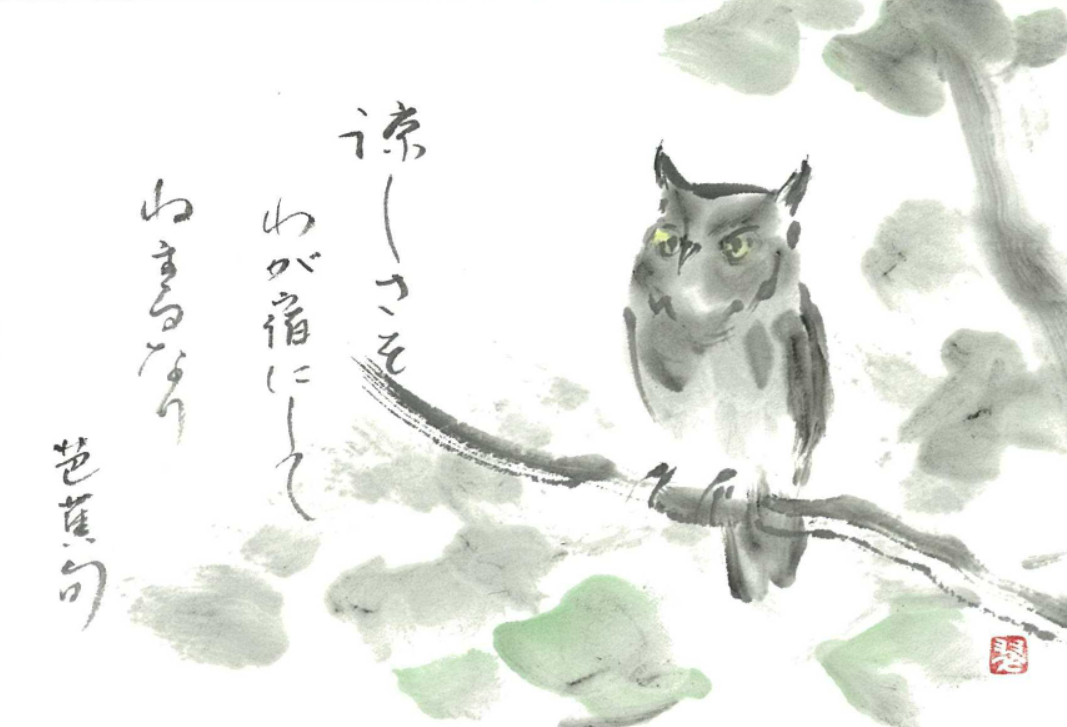 涼しさを
わが宿にして
ねまるなり
芭蕉句